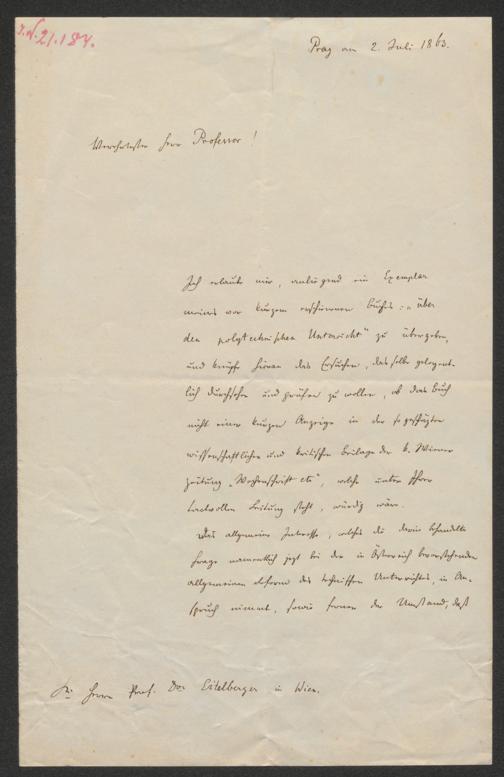 J.N. 21.184.
Prag am 2. Juli 1863.
Verehrtester Herr Professor!
Ich erlaube mir, anliegend ein Exemplar
meines vor kurzem erschienenen Buches: „über
den polytechnischen Unterricht" zu übergeben,
und knüpfe hieran das Ersuchen, dasselbe gelegent-
lich durchsehen und prüfen zu wollen, ob das Buch
nicht einer kurzen Anzeige in der so geschäzten
wissenschaftlichen und kritischen Beilage der k. Wiener
Zeitung „Wochenschrift etc", welche unter Ihrer
taktvollen Leitung steht, würdig wäre.
Das allgemeine Interesse, welches die darin behandelte
Frage namentlich jezt bei der in Österreich bevorstehenden
allgemeinen Reform des technischen Unterrichtes, in An-
spruch nimmt, sowie ferner der Umstand, daß
Herrn Prof. Dor Eitelberger in Wien.